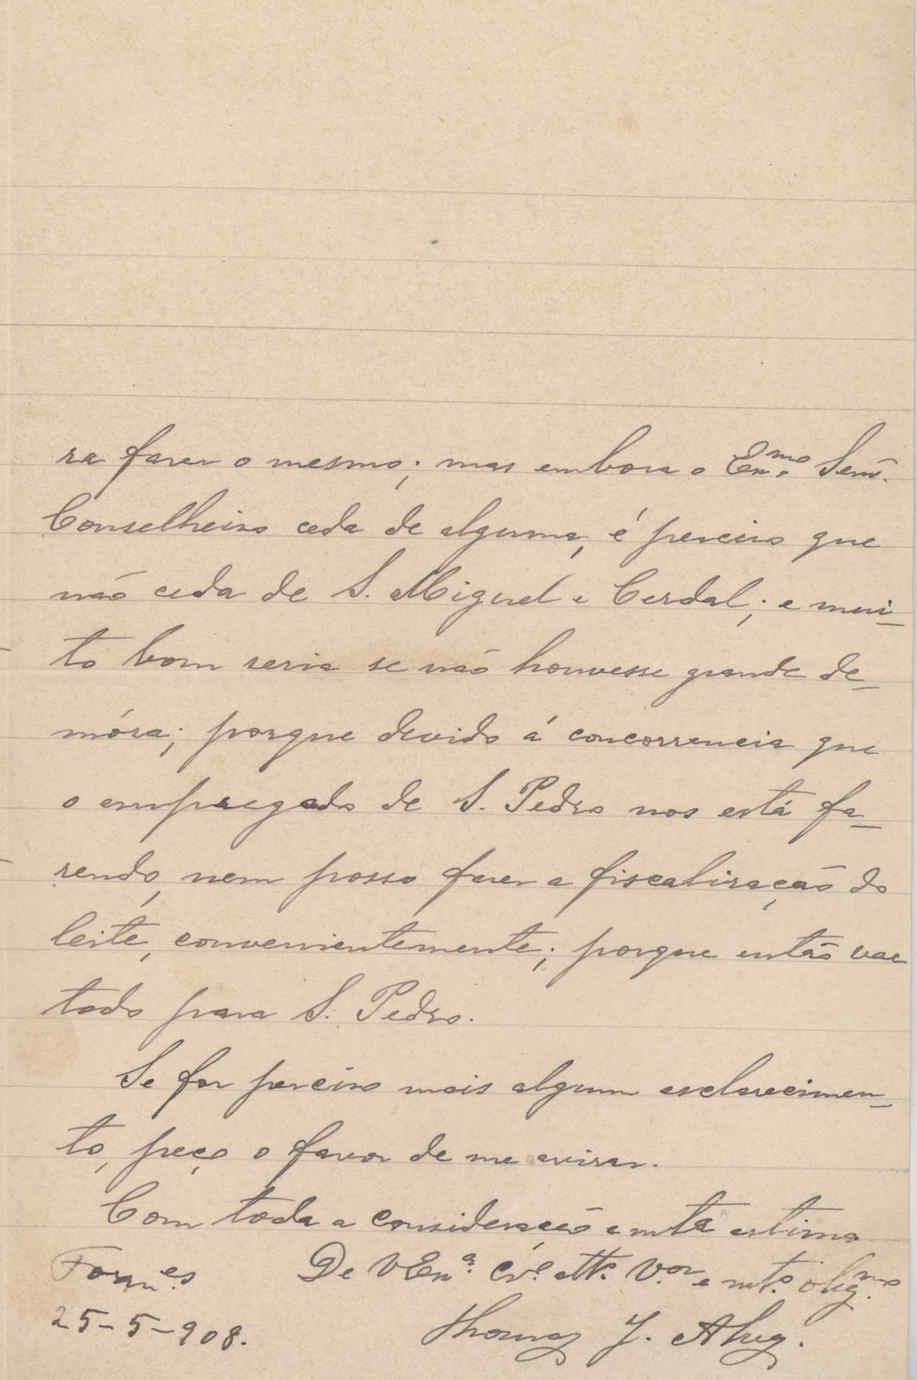 ra fazer o mesmo; mas embora o Exmo. Senr.
Conselheiro ceda de alguma, é preciso que
não ceda de S. Miguel e Cerdal; e mui-
to bom seria se não houvesse grande de-
móra; porque devido á concorrencia que
o empregado de S. Pedro nos está fa-
zendo, nem posso fazer a fiscalização do
leite, convenientemente; porque então vae
todo para S. Pedro.
Se for preciso mais algum esclarecimen-
to, peço o favor de me avisar.
Com toda a consideração e mta estima
De V Exa. cr.º att.º V.or e mt.º obig.mo
Forn.es
25-5-908.
Thomaz J. Alvz.